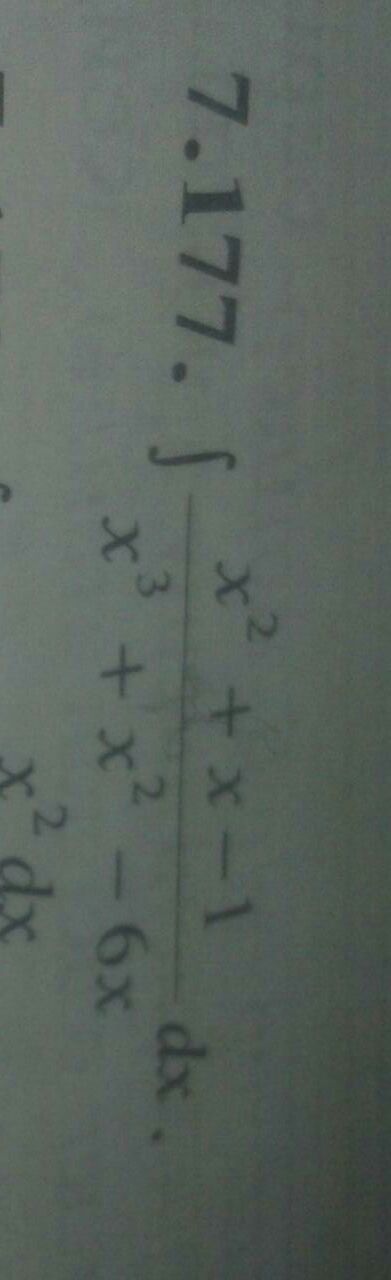 7.177. ∫ (x² + x − 1)/(x³ + x² − 6x) dx.
x² dx